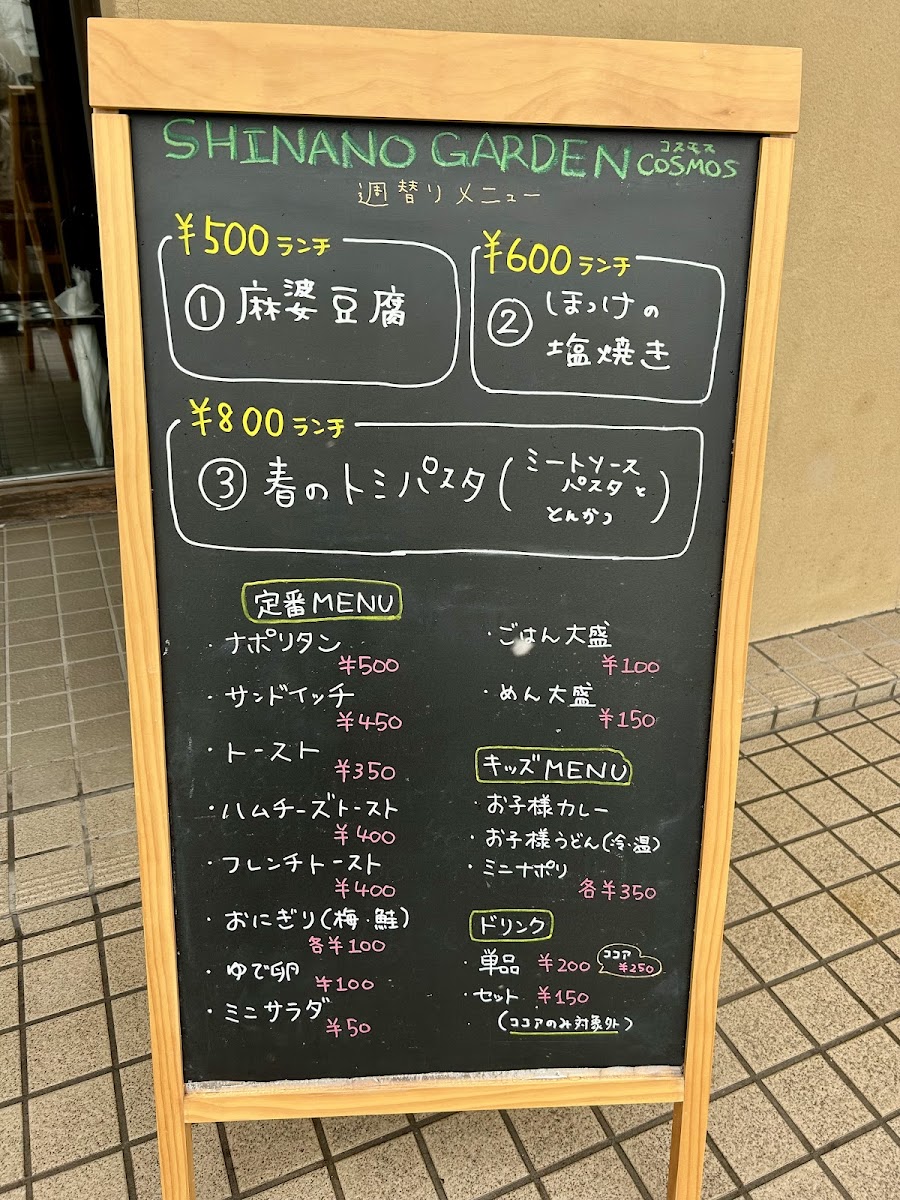 SHINANO GARDEN コスモス COSMOS
週替りメニュー
¥500 ランチ
① 麻婆豆腐
¥600 ランチ
② ほっけの
塩焼き
¥800 ランチ
③ 春のトミパスタ(ミートソース
パスタと
とんかつ)
定番MENU
・ナポリタン
¥500
・サンドイッチ
¥450
・トースト
¥350
・ハムチーズトースト
¥400
・フレンチトースト
¥400
・おにぎり(梅・鮭)
各¥100
・ゆで卵
¥100
・ミニサラダ
¥50
・ごはん大盛
¥100
・めん大盛
¥150
キッズMENU
・お子様カレー
・お子様うどん(冷・温)
・ミニナポリ
各¥350
ドリンク
・単品 ¥200 ココア ¥250
・セット ¥150
(ココアのみ対象外)